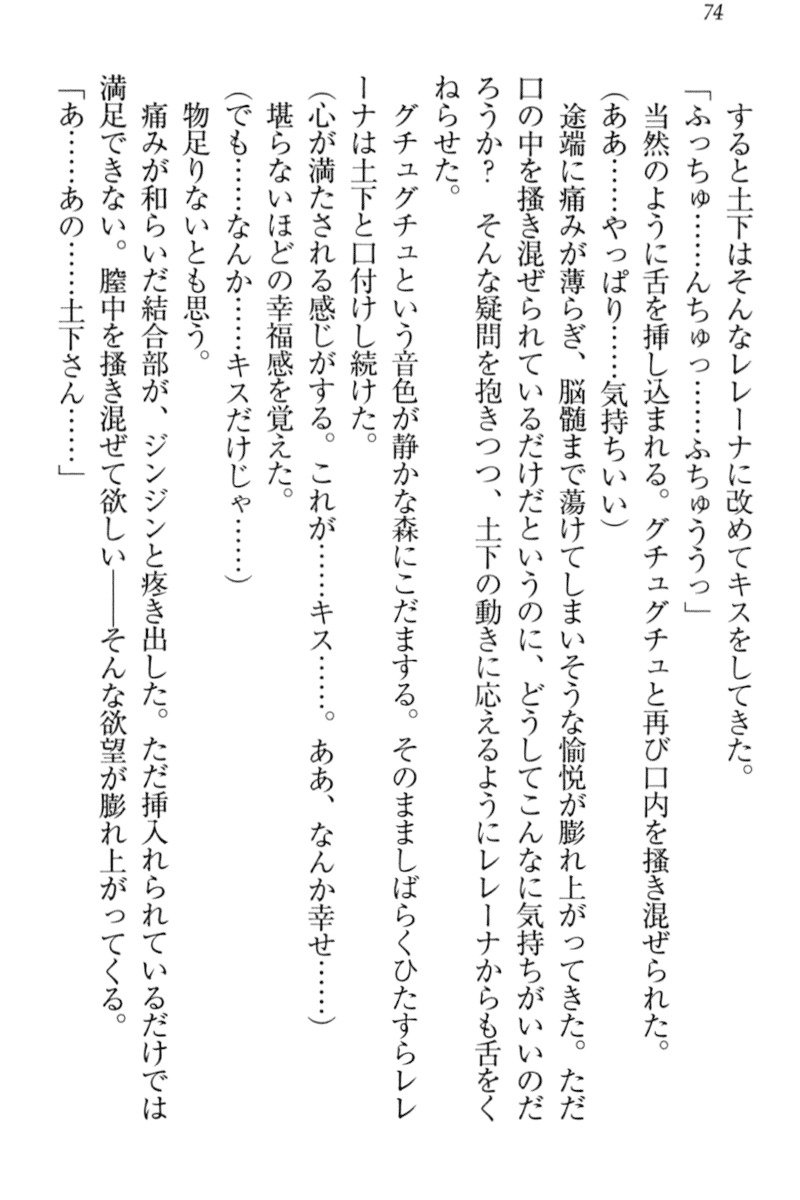 74
すると土下はそんなレレーナに改めてキスをしてきた。
「ふっちゅ……んちゅっ……ふちゅううっ」
当然のように舌を挿し込まれる。グチュグチュと再び口内を掻き混ぜられた。
（ああ……やっぱり……気持ちいい）
途端に痛みが薄らぎ、脳髄まで蕩けてしまいそうな愉悦が膨れ上がってきた。ただ
口の中を掻き混ぜられているだけだというのに、どうしてこんなに気持ちがいいのだ
ろうか？　そんな疑問を抱きつつ、土下の動きに応えるようにレレーナからも舌をく
ねらせた。
グチュグチュという音色が静かな森にこだまする。そのまましばらくひたすらレレ
ーナは土下と口付けし続けた。
（心が満たされる感じがする。これが……キス……。ああ、なんか幸せ……）
堪らないほどの幸福感を覚えた。
（でも……なんか……キスだけじゃ……）
物足りないとも思う。
痛みが和らいだ結合部が、ジンジンと疼き出した。ただ挿入れられているだけでは
満足できない。膣中を掻き混ぜて欲しい――そんな欲望が膨れ上がってくる。
「あ……あの……土下さん……」